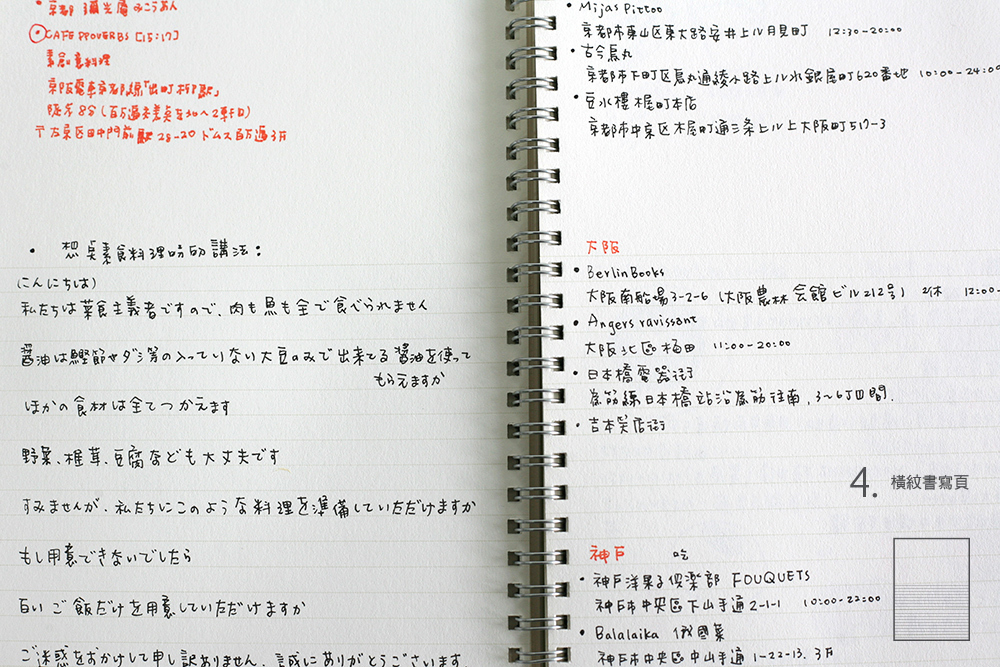 京都 彌光庵 みこうあん
CAFE PROVERBS [15:17]
素食創意料理
京阪電車京都線「出町柳駅」
徒歩8分(百万遍交差点を北へ2軒目)
〒左京区田中門前町28-20 ドムス百万遍3F
• 想吃素食料理時的講法:
(にんにちは)
私たちは菜食主義者ですので、肉も魚も全で食べられません
醤油は鰹節やダシ等の入っていない大豆のみで出来てる醤油を使って
もらえますか
ほかの食材は全てつかえます
野菜、椎茸、豆腐なども大丈夫です
すみませんが、私たちにこのような料理を準備していただけますか
もし用意できないでしたら
白いご飯だけを用意していただけますか
ご迷惑をおかけして申し訳ありません、誠にありがとうございます。
• Mijas Pittoo
京都市東山区東大路安井上ル月見町 12:30-20:00
• 古今烏丸
京都市下町区烏丸通綾小路上ル水銀屋町620番地 10:00-24:00
• 豆水樓 木屋町本店
京都市中京区木屋町通三条上ル上大阪町517-3
大阪
• BerlinBooks
大阪南船場3-2-6 (大阪農林会館ビル212号) 2休 12:00-
• Angers ravissant
大阪北區梅田 11:00-20:00
• 日本橋電器街
為筋線日本橋站沿為筋往南,3~6丁目間.
• 吉本笑店街
4. 橫紋書寫頁
神戶 吃
• 神戶洋菓子俱楽部 FOUQUETS
神戶市中央區下山手通2-1-1 10:00-22:00
• Balalaika 俄國菜
神戶市中央區中山手通1-22-13. 3F